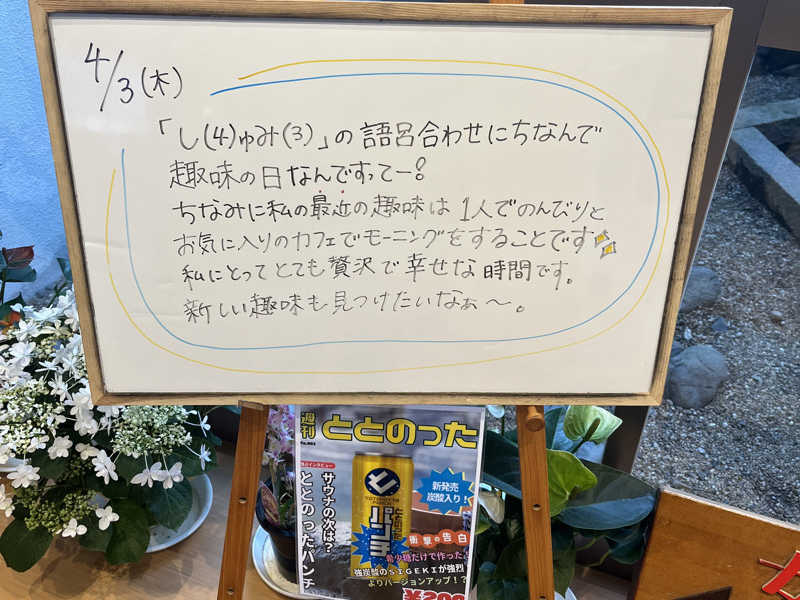 4/3(木)
「し(4)ゅみ(3)」の語呂合わせにちなんで
趣味の日なんですってー!
ちなみに私の最近の趣味は1人でのんびりと
お気に入りのカフェでモーニングをすることです
私にとってとても贅沢で幸せな時間です。
新しい趣味も見つけたいなぁ〜。
週刊
ととのった
サウナの次は?
ととのったパンチ
新発売
炭酸入り!
衝撃の告白
希少糖だけで作った
強炭酸のSIGEKIが強烈
よりバージョンアップ!?